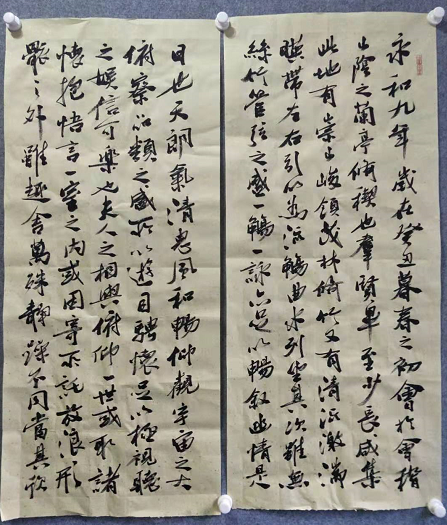 永和九年歲在癸丑暮春之初會於會稽
山陰之蘭亭脩禊也羣賢畢至少長咸集
此地有崇山峻領茂林脩竹又有清流激湍
暎帶左右引以為流觴曲水列坐其次雖無
絲竹管弦之盛一觴一詠亦足以暢敘幽情是
日也天朗氣清惠風和暢仰觀宇宙之大
俯察品類之盛所以遊目騁懷足以極視聽
之娛信可樂也夫人之相與俯仰一世或取諸
懷抱悟言一室之內或因寄所託放浪形
骸之外雖趣舍萬殊靜躁不同當其欣